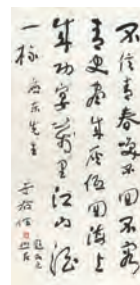 不信青春喚不回不容
青史盡成灰低回海上
成功宇萬里江山酒
一杯 先生
于右任